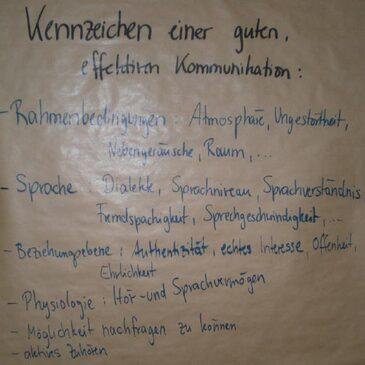 Kennzeichen einer guten,
effektiven Kommunikation:
- Rahmenbedingungen: Atmosphäre, Ungestörtheit,
Nebengeräusche, Raum, ...
- Sprache: Dialekte, Sprachniveau, Sprachverständnis
Fremdspachigkeit, Sprechgeschwindigkeit, ...
- Beziehungsebene: Authentizität, echtes Interesse, Offenheit,
Ehrlichkeit
- Physiologie: Hör- und Sprachvermögen
- Möglichkeit nachfragen zu können
- aktives Zuhören